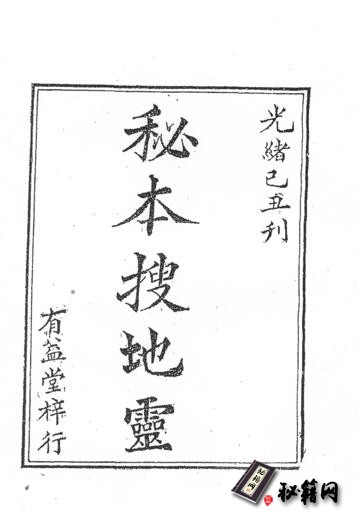 光緒己丑刊
秘本搜地靈
有益堂梓行
秘籍网